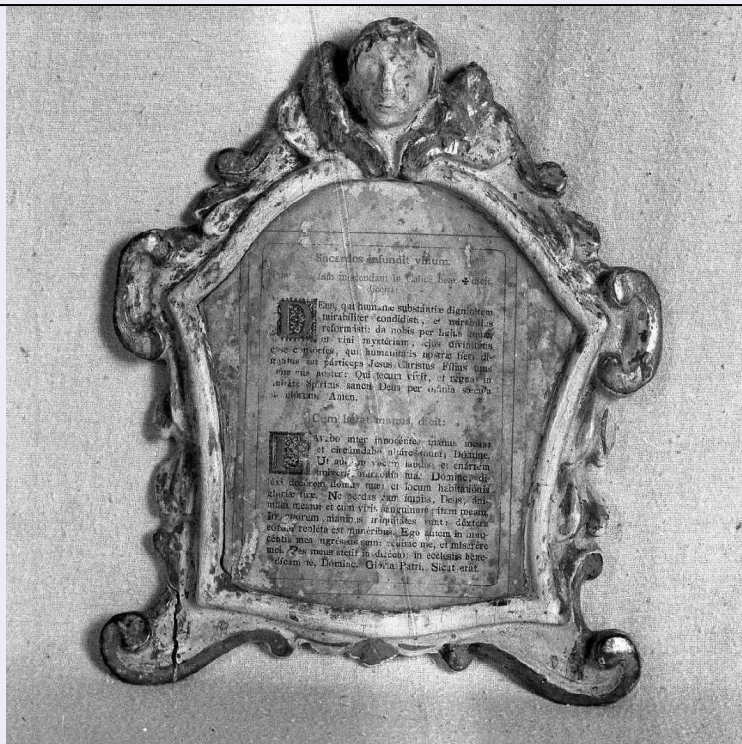 Sacerdos infundit vinum.
aquam miscendam in Calice bene ✠ dicit,
dicens:
DEus, qui humanæ substantiæ dignitatem
mirabiliter condidisti, et mirabilius
reformasti: da nobis per hujus aquæ,
et vini mysterium, ejus divinitatis
esse consortes, qui humanitatis nostræ fieri di-
gnatus est particeps Jesus Christus Filius tuus
Dominus noster: Qui tecum vivit, et regnat in
unitate Spiritus sancti Deus per omnia sæcula
sæculorum. Amen.
Cum lavat manus, dicit:
LAvabo inter innocentes manus meas:
et circumdabo altare tuum, Domine.
Ut audiam vocem laudis, et enarrem
universa mirabilia tua. Domine, di-
lexi decorem domus tuæ, et locum habitationis
gloriæ tuæ. Ne perdas cum impiis, Deus, ani-
mam meam: et cum viris sanguinum vitam meam.
In quorum manibus iniquitates sunt: dextera
eorum repleta est muneribus. Ego autem in inno-
centia mea ingressus sum: redime me, et miserere
mei. Pes meus stetit in directo: in ecclesiis bene-
dicam te, Domine. Gloria Patri. Sicut erat.